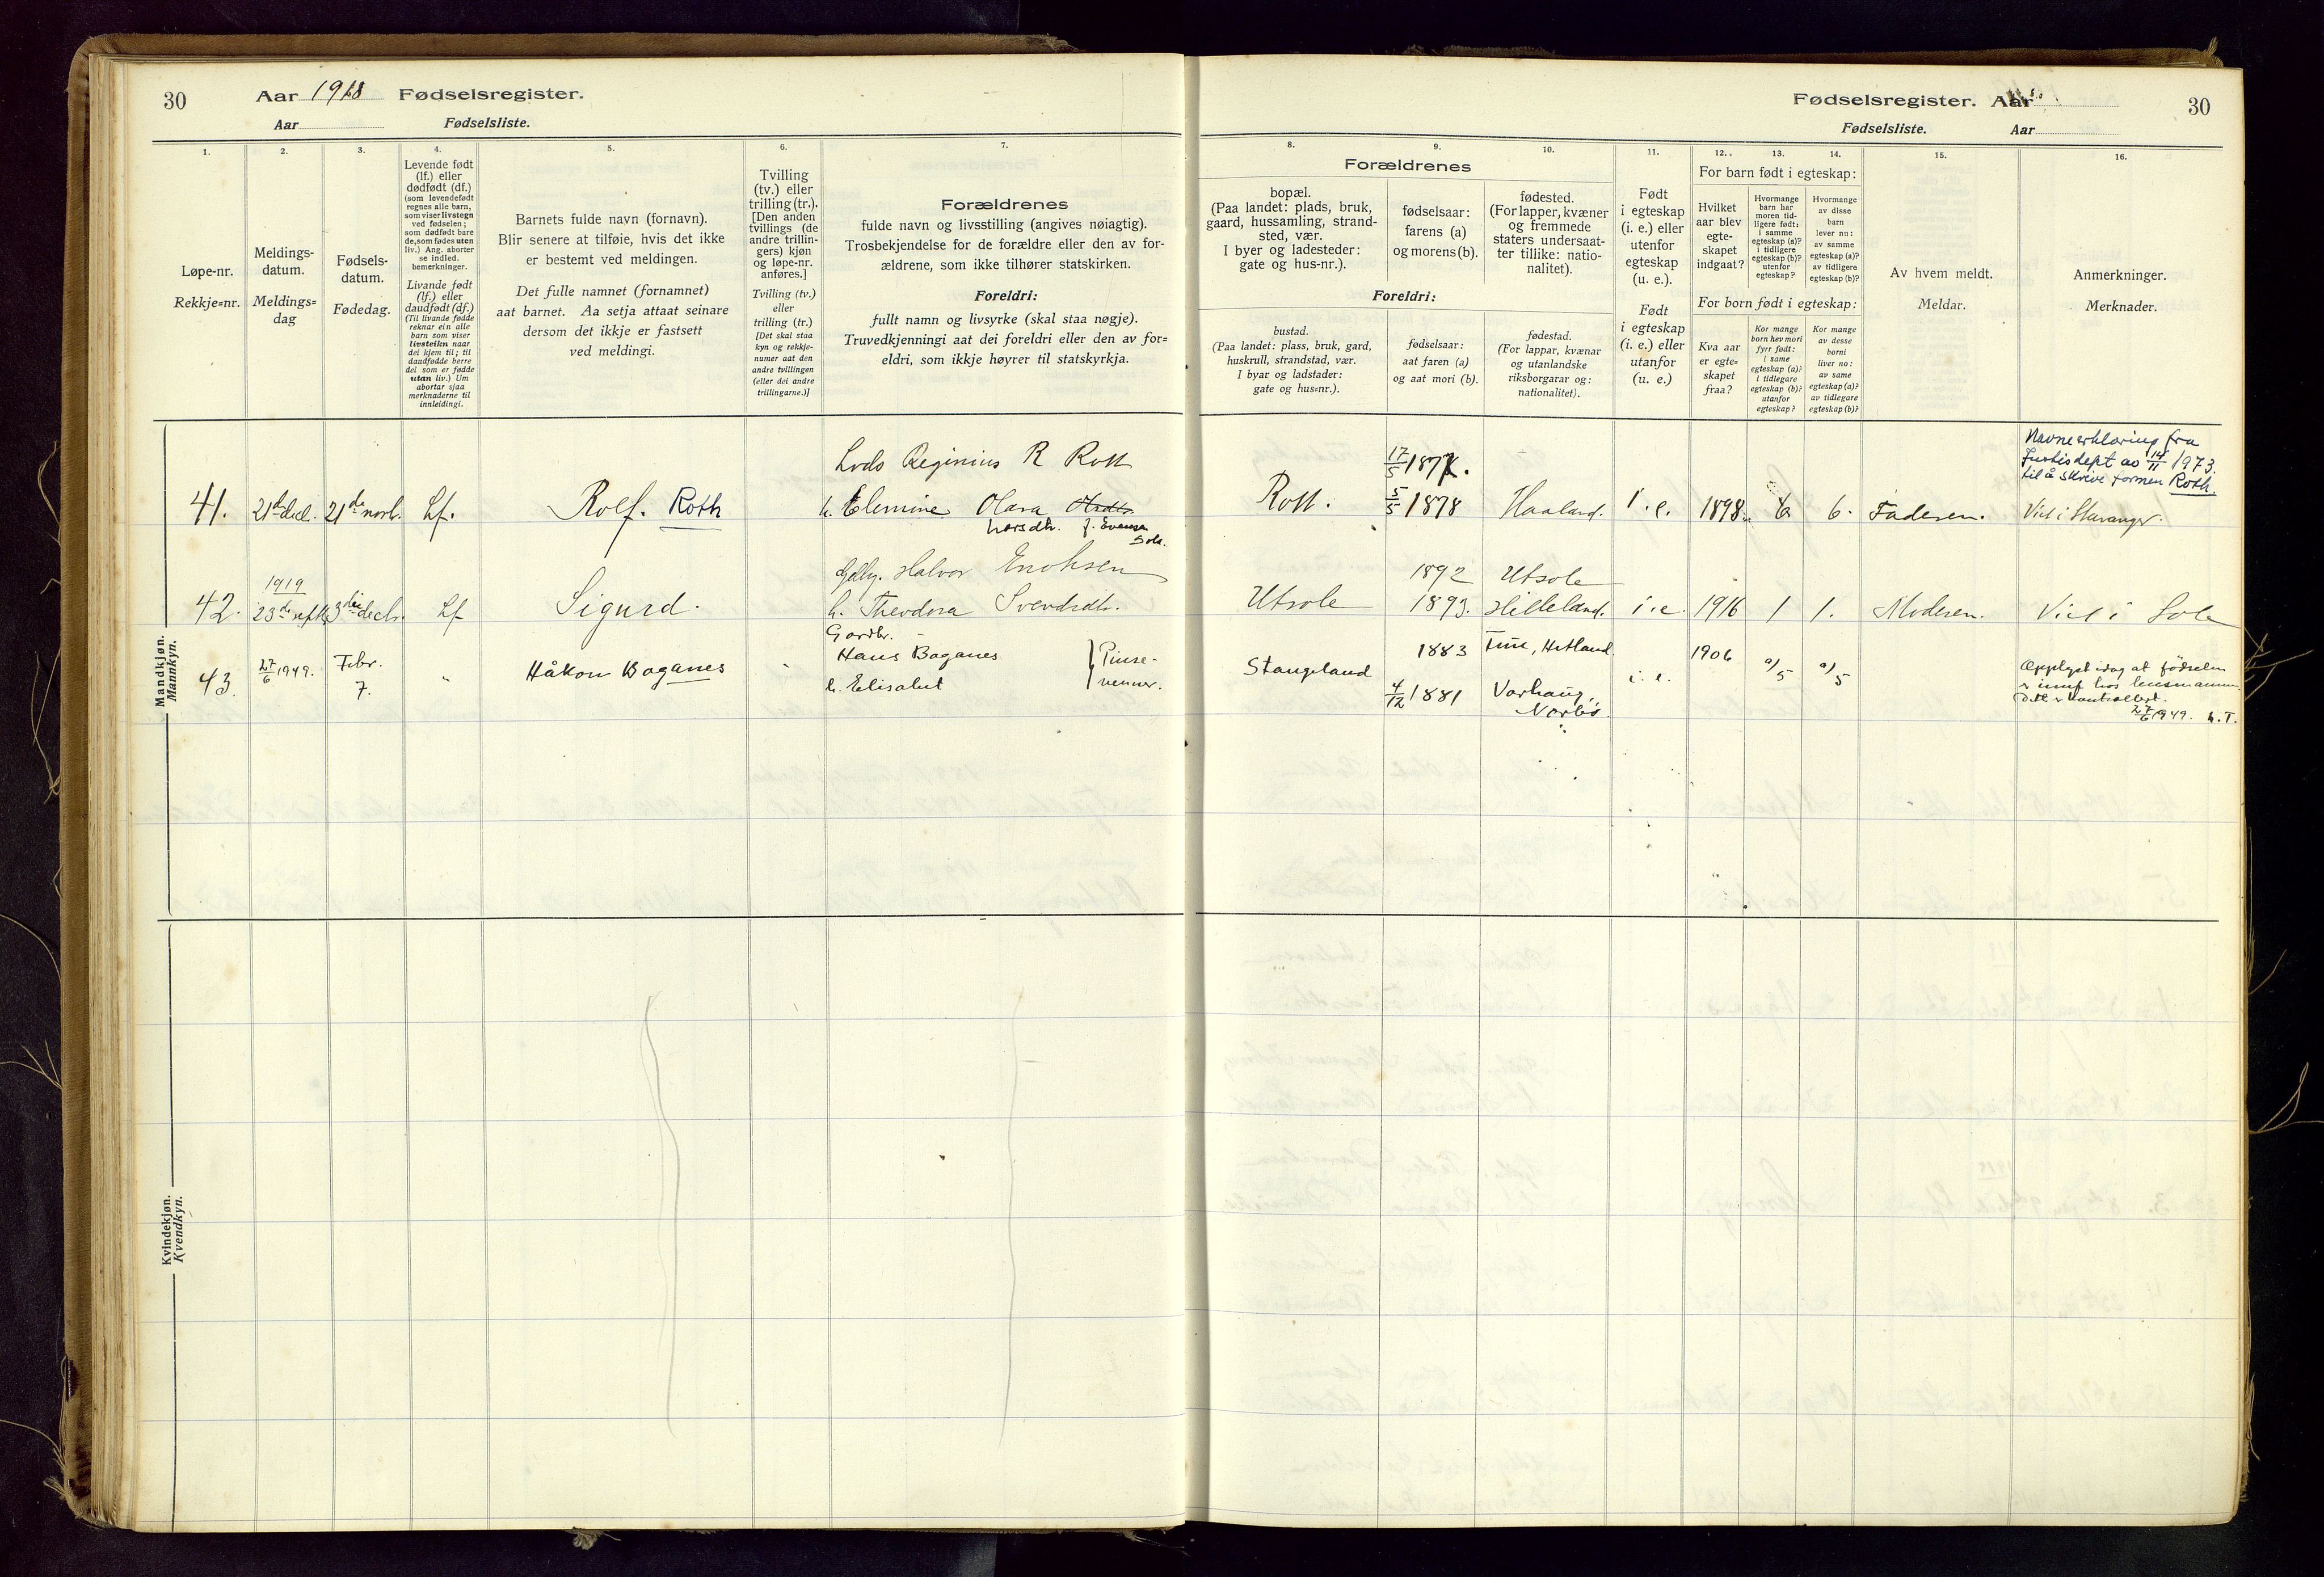 30
Aar 1918 Fødselsregister.
Aar Fødselsliste.
1.
Løpe-nr.
Rekkje=nr.
2.
Meldings-
datum.
Meldings=
dag
3.
Fødsels-
datum.
Fødedag.
4.
Levende født
(lf.) eller
dødfødt (df.)
(som levendefødt
regnes alle barn,
som viser livstegn
ved fødselen;
som dødfødt bare
de, som fødes uten
liv.) Ang. aborter
se indled.
bemerkninger.
Livande født
(lf.) eller
daudfødt (df.)
(Til livande fødde
reknar ein alle
barn som viser
livsteikn naar
dei kjem til; til
daudfødde berre
dei som er fødde
utan liv.) Um
abortar sjaa
merknaderne til
innleidingi.
5.
Barnets fulde navn (fornavn).
Blir senere at tilføie, hvis det ikke
er bestemt ved meldingen.
Det fulle namnet (fornamnet)
aat barnet. Aa setja attaat seinare
dersom det ikkje er fastsett
ved meldingi.
6.
Tvilling
(tv.) eller
trilling (tr.).
[Den anden
tvillings (de
andre trillin-
gers) kjøn
og løpe-nr.
anføres.]
Tvilling (tv.)
eller
trilling (tr.)
[Det skal staa
kyn og rekkje-
numer aat den
andre tvillingen
(eller dei andre
trillingarne.)]
7.
Forældrenes
fulde navn og livsstilling (angives nøiagtig).
Trosbekjendelse for de forældre eller den av for-
ældrene, som ikke tilhører statskirken.
Foreldri:
fullt namn og livsyrke (skal staa nøgje).
Truvedkjenningi aat dei foreldri eller den av for=
eldri, som ikkje høyrer til statskyrkja.
Mandkjøn.
Mannkyn.
41. 21de decl. 21de novb. Lf. Rolf. Roth
Lods Reginius R Rott
h. Elemine Olava
Larsdtr. f. Evensen
Sola.
42. 1919
23de septb. 3die decbr. Lf Sigurd.
Gdbr. Halvor Enoksen
h. Theodora Svendsdtr.
43. 27/6 1949. Febr.
7. " Håkon Boganes
Gardbr.
Hans Boganes
h. Elisabet
Pinse-
venner.
Kvindekjøn.
Kvendkyn.
Fødselsregister. Aar 30
Fødselsliste. Aar
8.
Forældrenes
bopæl.
(Paa landet: plads, bruk,
gaard, hussamling, strand-
sted, vær.
I byer og ladesteder:
gate og hus-nr.).
Foreldri:
bustad.
(Paa landet: plass, bruk, gard,
huskrull, strandstad, vær.
I byar og ladstader:
gate og hus=nr.).
9.
fødselsaar:
farens (a)
og morens (b).
fødselsaar:
aat faren (a)
og aat mori (b).
10.
fødested.
(For lapper, kvæner
og fremmede
staters undersaat-
ter tillike: natio-
nalitet).
fødestad.
(For lappar, kvænar
og utanlandske
riksborgarar og:
nationalitet).
11.
Født
i egteskap
(i. e.) eller
utenfor
egteskap
(u. e.).
Født
i egteskap
(i. e.) eller
utanfor
(u. e.).
12.
For barn født i egteskap:
Hvilket
aar blev
egte-
skapet
indgaat?
For born født i egteskap:
Kva aar
er egte=
skapet
fraa?
13.
Hvormange
barn har
moren tid-
ligere født:
i samme
egteskap (a)?
i tidligere
egteskap (b)?
utenfor
egteskap?
Kor mange
born hev mori
fyrr født:
i same
egteskap (a)?
i tidlegare
egteskap (b)?
utanfor
egteskap?
14.
Hvormange
av disse
barn
lever nu:
av samme
egteskap (a)?
av tidligere
egteskap (b)?
Kor mange
av desse
borni
liver no:
av same
egteskap (a)?
av tidlegare
egteskap (b)?
15.
Av hvem meldt.
Meldar.
16.
Anmerkninger.
Merknader.
Rott. 17/5 1877.
5/5 1878 Haaland. i. e. 1898 6 6. Faderen.
Navneerklæring fra
Justisdept av 14/11 1973.
til å skrive formen Roth.
Viet i Stavanger.
Utsole 1892 Utsole
1893. Hilleland. i. e. 1916 1 1. Moderen. Viet i Sole
Stangeland 1883 Time, Hetland.
4/12 1881 Varhaug,
Nærbø. i. e. 1906 a/5 a/5
Opplyst idag at fødselen
er innf hos lensmannen
Det er kontrollert.
27/6 1949. h. T.